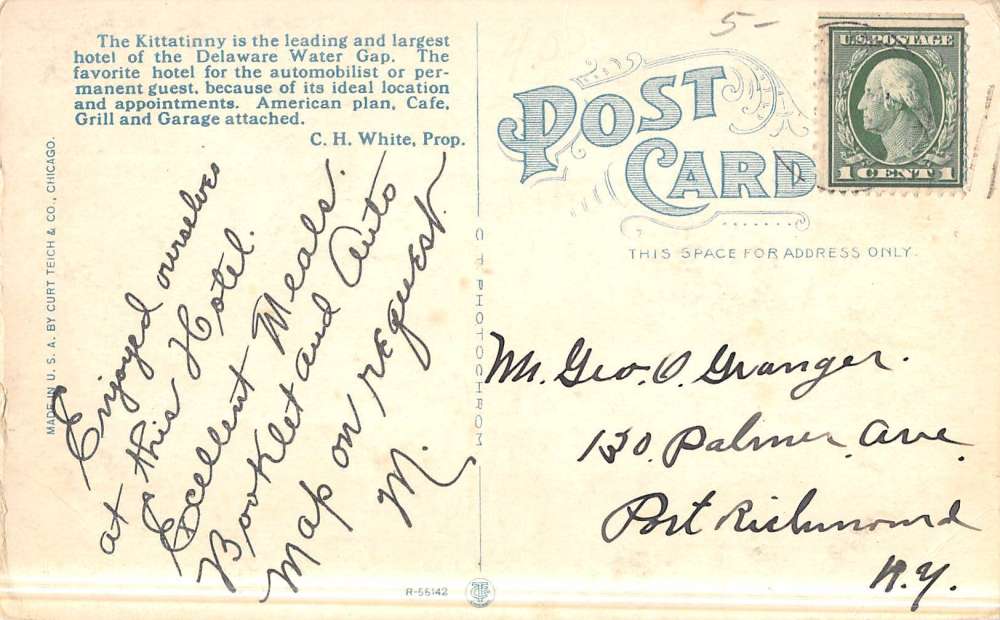 The Kittatinny is the leading and largest
hotel of the Delaware Water Gap. The
favorite hotel for the automobilist or per-
manent guest, because of its ideal location
and appointments. American plan, Cafe,
Grill and Garage attached.
C. H. White, Prop.
Enjoyed ourselves
at this Hotel.
Excellent Meals.
Booklet and Auto
Map on request.
M.
MADE IN U. S. A. BY CURT TEICH & CO., CHICAGO.
C T PHOTOCHROM
R-56142
5-
POST
CARD
THIS SPACE FOR ADDRESS ONLY.
U.S. POSTAGE
1 CENT 1
Mr. Geo. O. Granger.
130 Palmer Ave.
Port Richmond
N.Y.